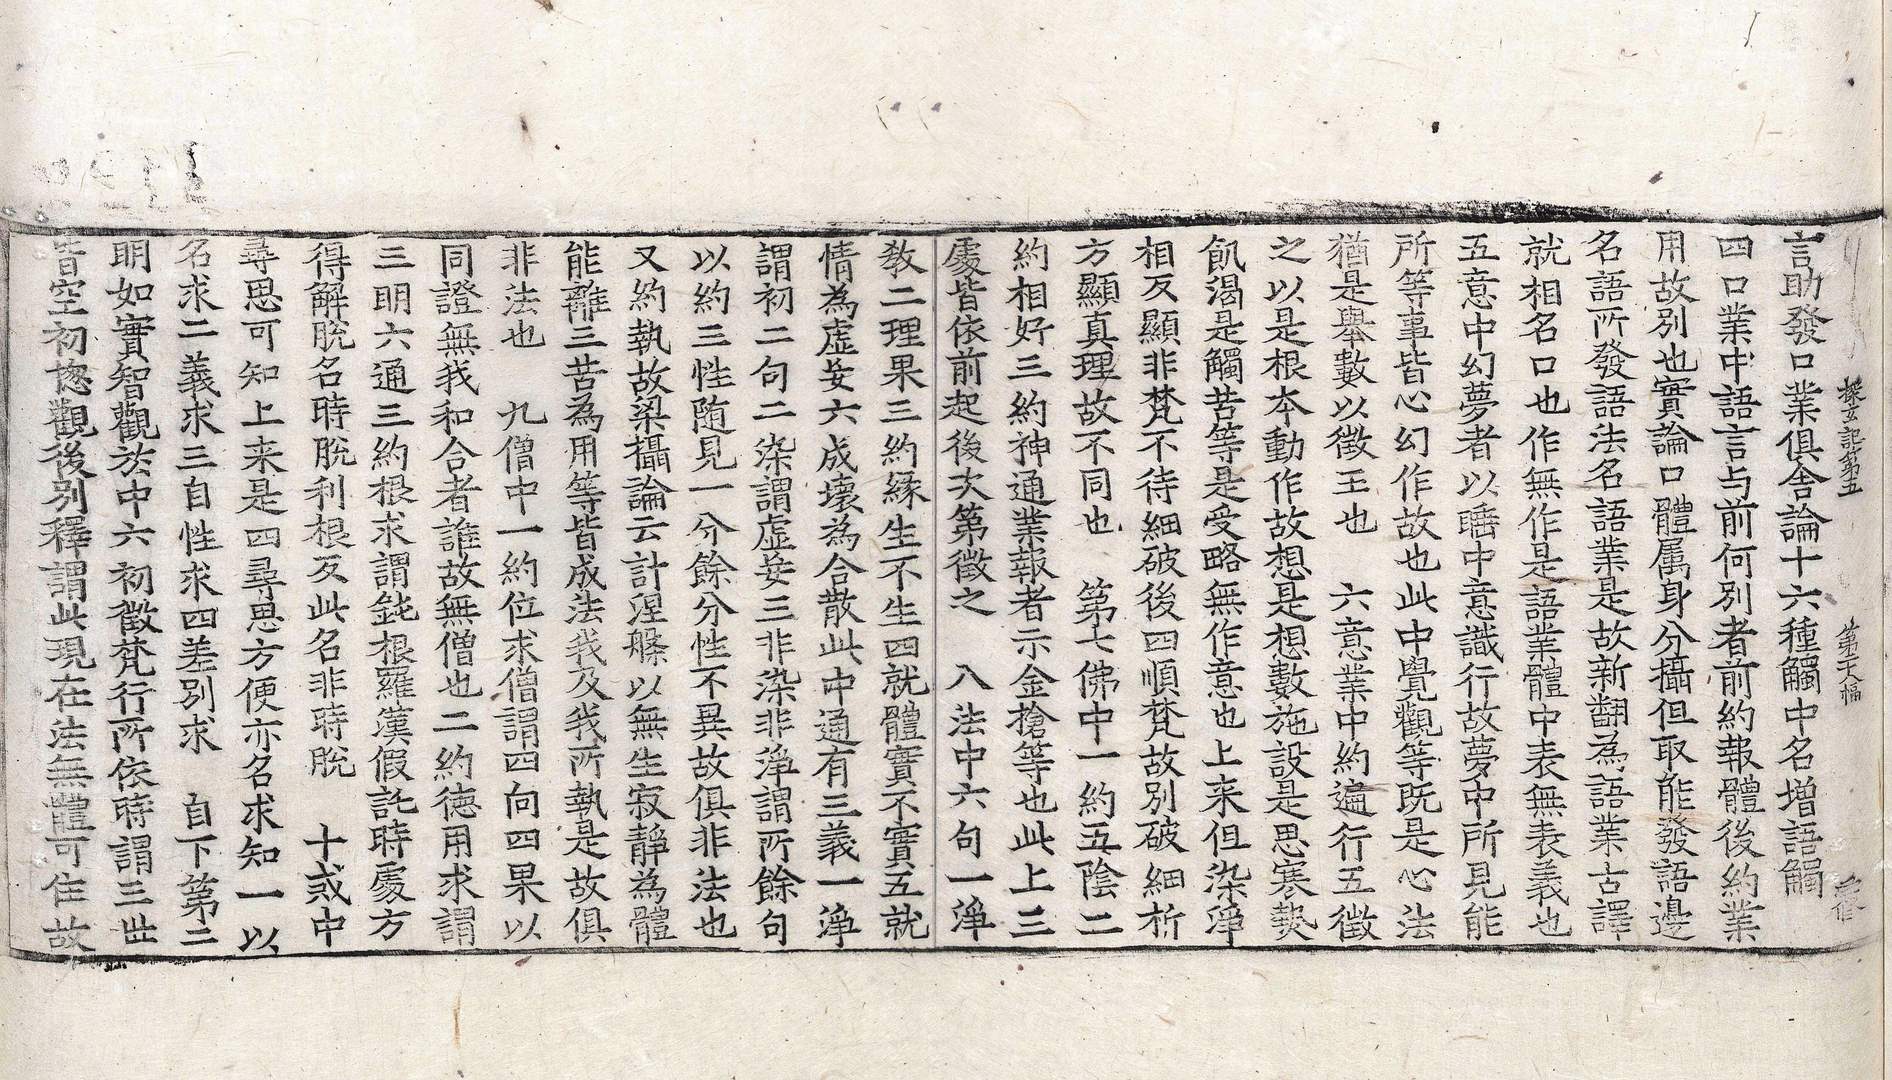 探玄記第五　第二十八幅
言助發口業俱舍論十六種觸中名增語觸
四口業中語言与前何別者前約報體後約業
用故別也實論口體属身分攝但取能發語邊
名語所發語法名語業是故新翻為語業古譯
就相名口也作無作是語業體中表無表義也
五意中幻夢者以睡中意識行故夢中所見能
所等事皆心幻作故也此中覺觀等既是心法
猶是舉數以徵王也　六意業中約遍行五徵
之以是根夲動作故想是想數施設是思寒𤍠
飢渴是觸苦等是受略無作意也上来但染淨
相反顯非梵不待細破後四順梵故別破細析
方顯真理故不同也　第七佛中一約五陰二
約相好三約神通業報者示金搶等也此上三
處皆依前起後次第徵之　八法中六句一淨
教二理果三約緣生不生四就體實不實五就
情為虛妄六成壞為合散此中通有三義一淨
謂初二句二染謂虛妄三非染非淨謂所餘句
以約三性随見一分餘分性不異故俱非法也
又約執故梁攝論云計涅槃以無生寂靜為體
能離三苦為用等皆成法我及我所執是故俱
非法也　九僧中一約位求僧謂四向四果以
同證無我和合者誰故無僧也二約德用求謂
三明六通三約根求謂鈍根羅漢假託時處方
得解脫名時脫利根反此名非時脫　十戒中
尋思可知上来是四尋思方便亦名求知一以
名求二義求三自性求四差別求　自下第二
明如實智觀於中六初徵梵行所依時謂三世
皆空初揔觀後別釋謂此現在法無體可住故